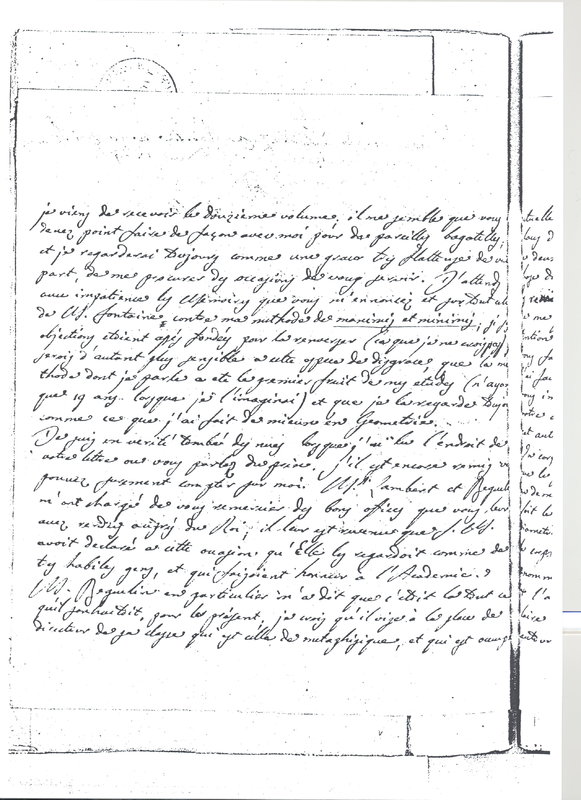 je viens de recevoir le douzieme volume. il me semble que vous
devez point faire de façon avec moi pour de pareilles bagatelles,
et je regarderai toujours comme une grace tres flatteuse de vo
part, de me procurer des occasions de vous servir. J'attend
avec impatience les Memoires que vous m'annoncez et surtout ce
de M. Fontaine contre ma methode de maximis et minimis, si s
objections étoient assez fondées pour la renverser (ce que je ne crois pas)
serois d'autant plus sensible a cette espece de disgrace, que la me
thode dont je parle a été le premier fruit de mes etudes (n'ayan
que 19 ans lorsque je l'imaginai) et que je la regarde toujo
comme ce que j'ai fait de mieux en Geometrie.
Je suis en verité tombé des nues lorsque j'ai lu l'endroit de
votre lettre ou vous parlez du prix. S'il est encore remis v
pouvez surement compter sur moi. Mrs. Lambert et Beguelin
m'ont chargé de vous remercier des bons offices que vous leur
avez rendus aupres du Roi; il leur est revenu que S. M.
avoit declaré a cette occasion qu'Elle les regardoit comme de
tres habiles gens, et qui faisoient honneur à l'Academie.
M. Beguelin en particulier m'a dit que c'étoit là tout ce
qu'il souhaitoit, pour le présent, je crois qu'il vise à la place de
directeur de sa classe qui est celle de metaphysique, et qui est